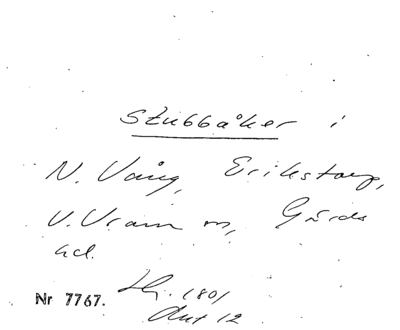 Stubbåker i
N. Vång, Erikstorp,
V. Vram m, Gärds
hd.
Nr 7767. Hj. 1801
Aut 12